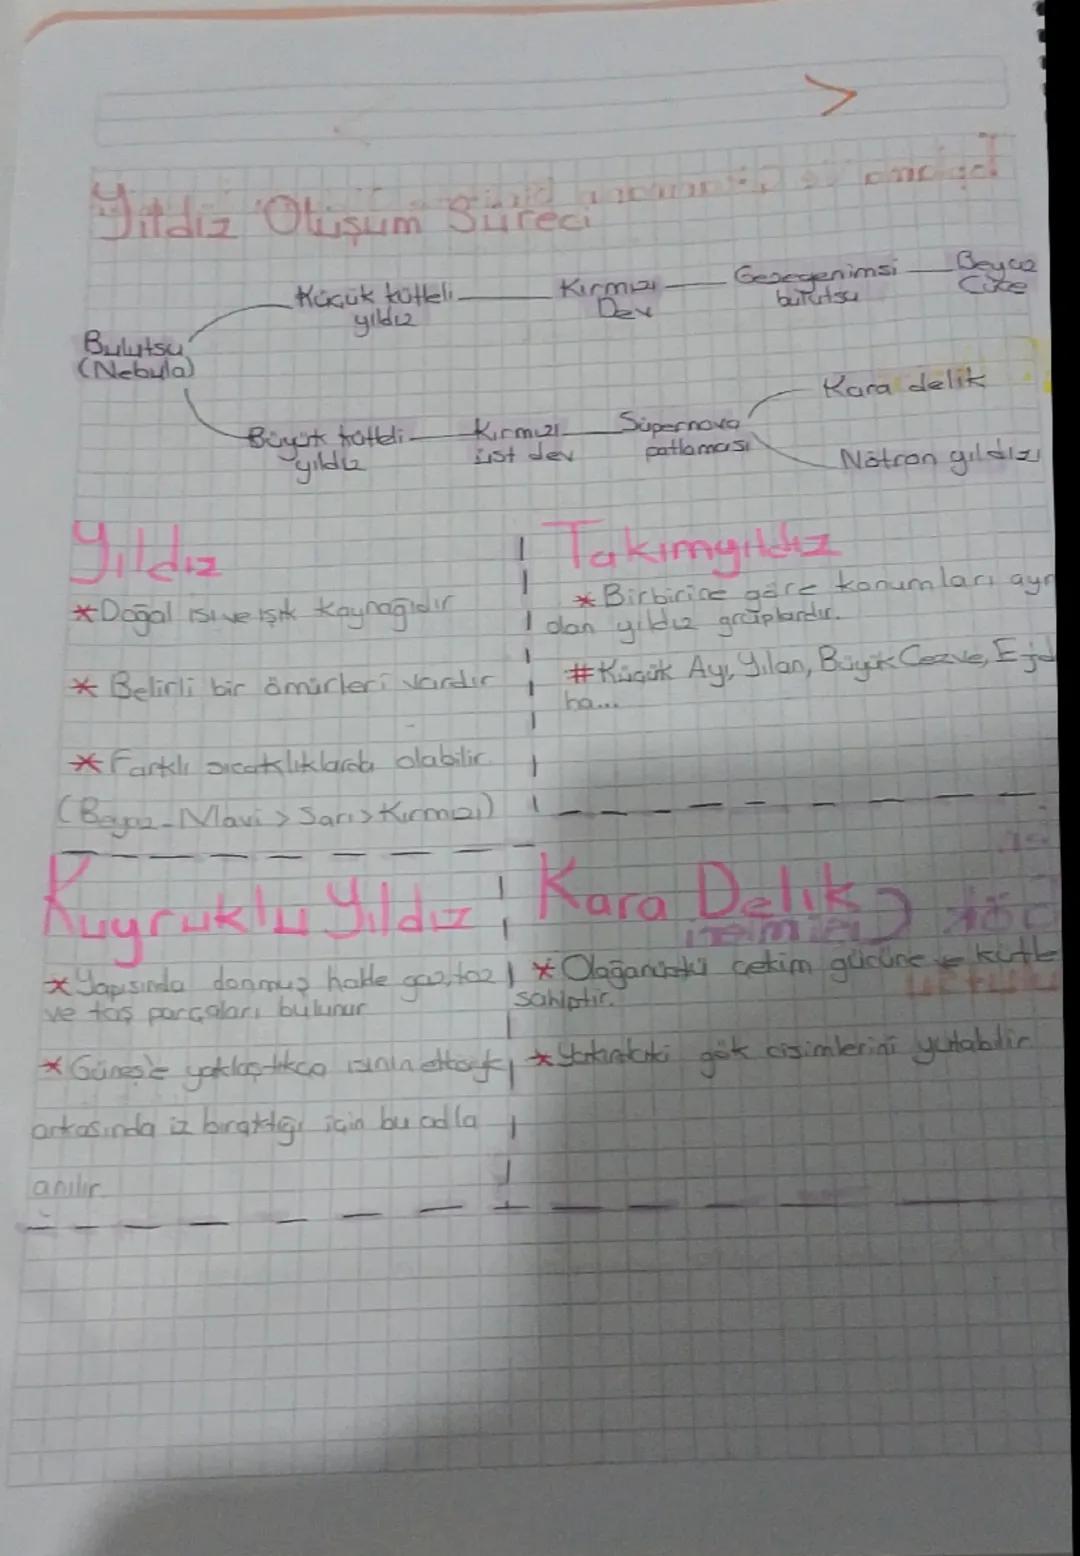 Yıldız Oluşum Süreci
Küçük kütleli yıldız
Kırmızı Dev
Gezegenimsi bulutsu
Beyaz Cüce
Bulutsu
(Nebula)
Büyük kütleli yıldız
Kırmızı üst dev
Süpernova patlaması
Kara delik
Nötron yıldızı
Yıldız
* Doğal ısı ve ışık kaynağıdır
* Belirli bir ömürleri vardır
* Farklı sıcaklıklarda olabilir.
(Beyaz - Mavi > Sarı > Kırmızı)
Takımyıldız
* Birbirine göre konumları ayn
olan yıldız gruplarıdır.
# Küçük Ayı, Yılan, Büyük Cezve, Ejd
ha...
Kuyruklu Yıldız
* Yapısında donmuş halde gaz, toz
ve taş parçaları bulunur
* Güneş'e yaklaştıkça
arkasında iz bıraktığı için bu adla
anılır.
Kara Delik
* Olağanüstü çekim gücüne ve kütle
sahiptir.
* Yakındaki gök cisimlerini yutabilir